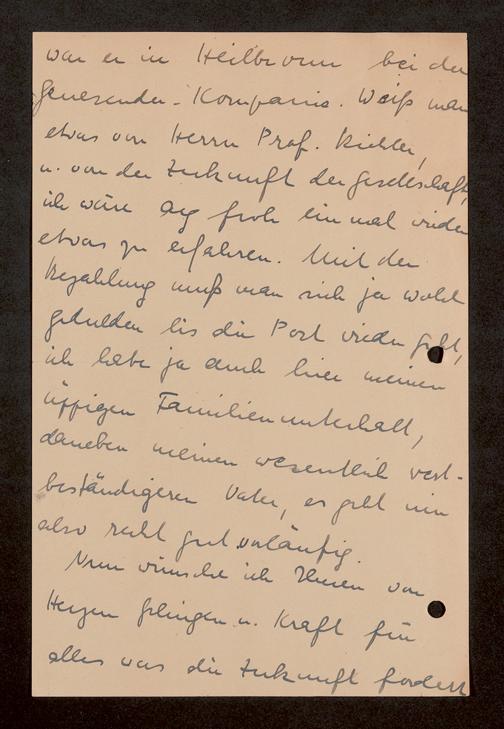 war er in Heilbronn bei der
Genesender-Kompanie. Weiß man
etwas von Herrn Prof. Richter,
u. von der Zukunft der Gesellschaft,
ich wäre arg froh einmal wieder
etwas zu erfahren. Mit der
Bezahlung muß man sich ja wohl
gedulden bis die Post wieder geht,
ich habe ja auch hier meinen
üppigen Familienunterhalt,
daneben meinen wesentlich wert-
beständigeren Vater, es geht mir
also recht gut vorläufig.
Nun wünsche ich Ihnen von
Herzen Gelingen u. Kraft für
alles was die Zukunft fordert